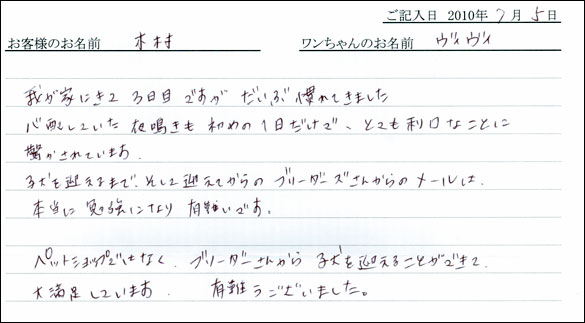 ご記入日 2010年 7月 5日
お客様のお名前 木村 ワンちゃんのお名前 ヴィヴィ
我が家にきて 3日目 ですが だいぶ 慣れてきました
心配していた 夜鳴きも 初めの1日だけで、とても利口なことに
驚かされています。
子犬を迎えるまで、そして迎えてからの ブリーダーズさんからの メールは、
本当に 勉強になり 有難いです。
ペットショップではなく、ブリーダーさんから 子犬を迎えることができて、
大満足しています。 有難うございました。